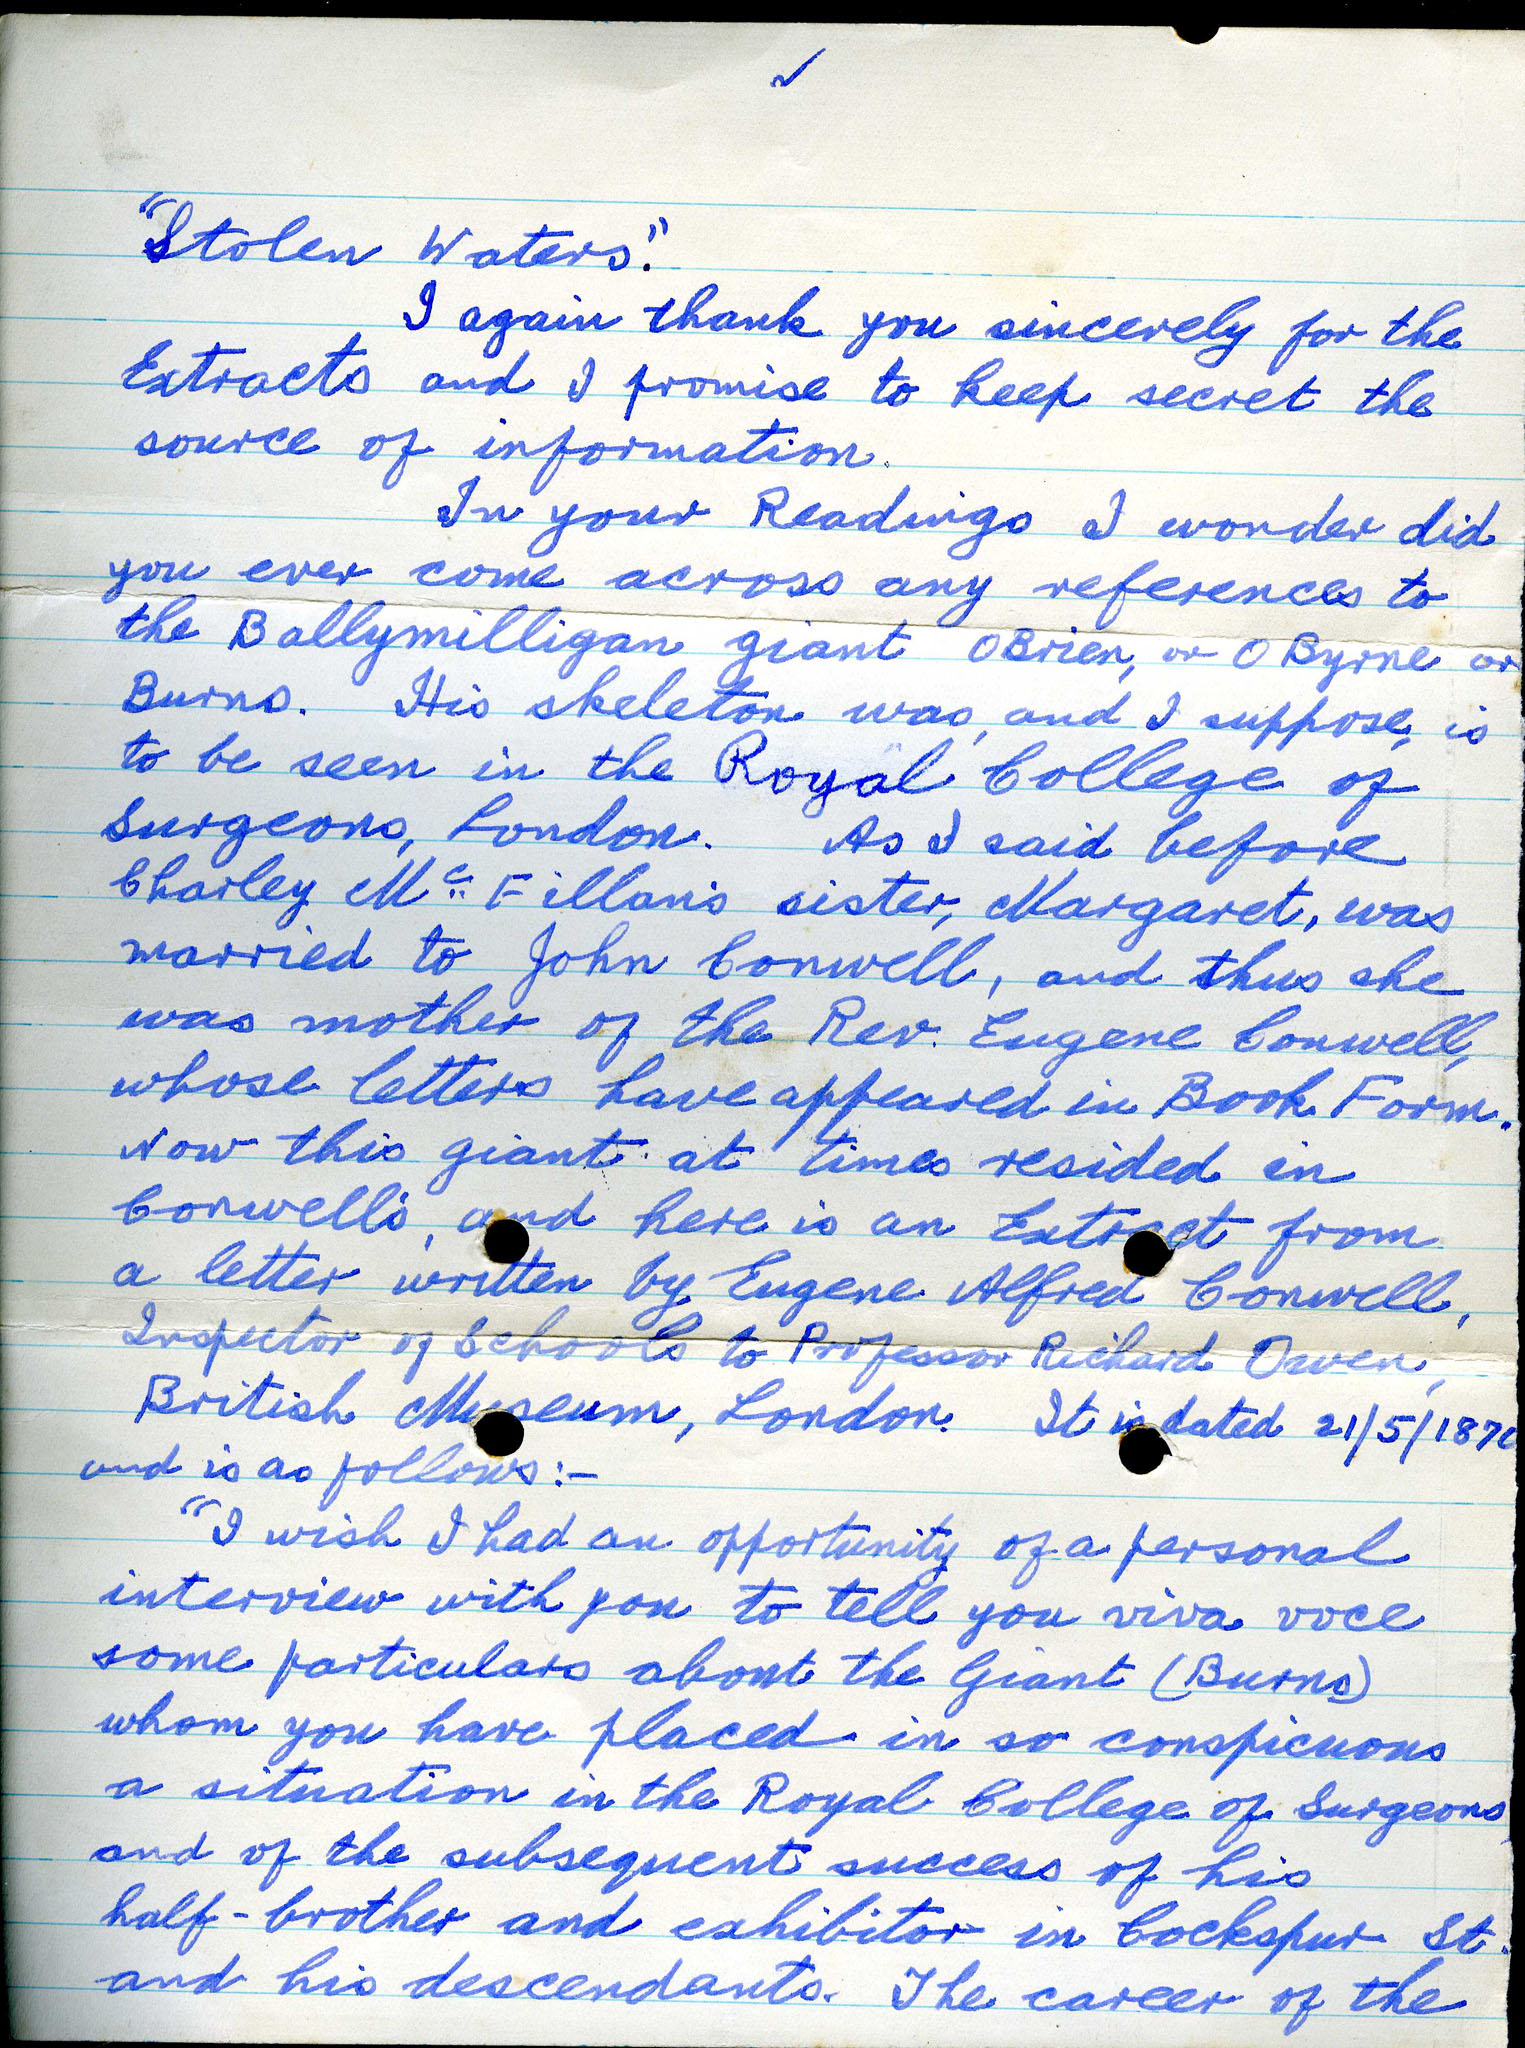 "Stolen Waters".
I again thank you sincerely for the
Extracts and I promise to keep secret the
source of information.
In your Readings I wonder did
you ever come across any references to
the Ballymilligan giant OBrien, or O Byrne or
Burns. His skeleton was, and I suppose, is
to be seen in the Royal College of
Surgeons, London. As I said before
Charley Mc Fillan's sister, Margaret, was
married to John Conwell, and thus she
was mother of the Rev. Eugene Conwell,
whose letters have appeared in Book Form.
Now this giant at times resided in
Conwell's, and here is an Extract from
a letter written by Eugene Alfred Conwell,
Inspector of Schools to Professor Richard Owen,
British Museum, London. It is dated 21/5/1870
and is as follows:-
"I wish I had an opportunity of a personal
interview with you to tell you viva voce
some particulars about the Giant (Burns)
whom you have placed in so conspicuous
a situation in the Royal College of Surgeons,
and of the subsequent success of his
half-brother and exhibitor in Cockspur St.
and his descendants. The career of the